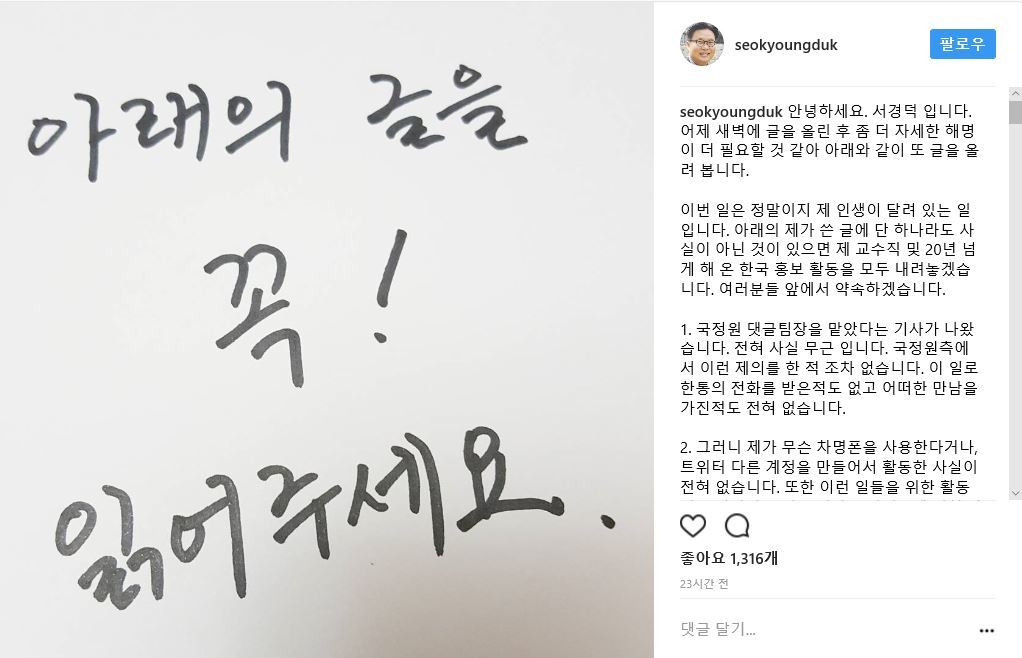 아래의 글을
꼭!
읽어주세요.
seokyoungduk
팔로우
seokyoungduk 안녕하세요. 서경덕 입니다.
어제 새벽에 글을 올린 후 좀 더 자세한 해명
이 더 필요할 것 같아 아래와 같이 또 글을 올
려 봅니다.
이번 일은 정말이지 제 인생이 달려 있는 일
입니다. 아래의 제가 쓴 글에 단 하나라도 사
실이 아닌 것이 있으면 제 교수직 및 20년 넘
게 해 온 한국 홍보 활동을 모두 내려놓겠습
니다. 여러분들 앞에서 약속하겠습니다.
1. 국정원 댓글팀장을 맡았다는 기사가 나왔
습니다. 전혀 사실 무근 입니다. 국정원측에
서 이런 제의를 한 적 조차 없습니다. 이 일로
한통의 전화를 받은적도 없고 어떠한 만남을
가진적도 전혀 없습니다.
2. 그러니 제가 무슨 차명폰을 사용한다거나,
트위터 다른 계정을 만들어서 활동한 사실이
전혀 없습니다. 또한 이런 일들을 위한 활동
좋아요 1,316개
23시간 전
댓글 달기...